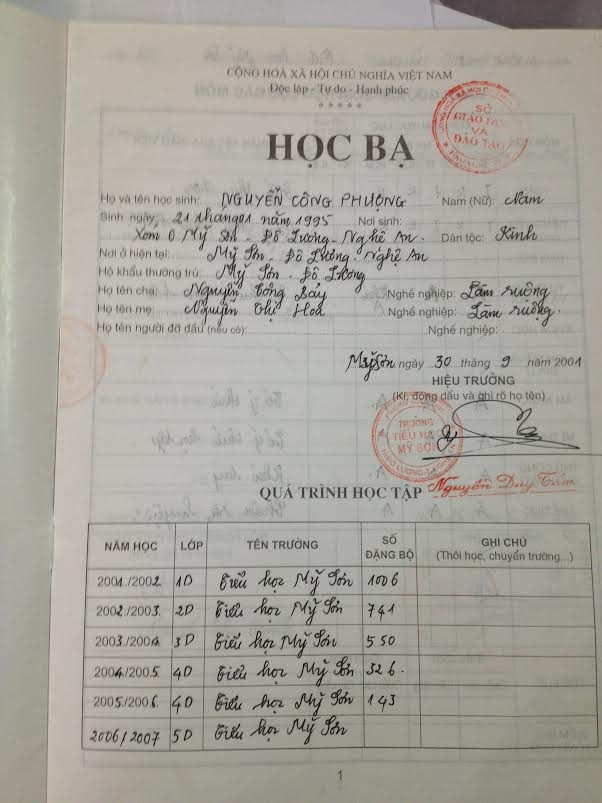 CỘNG HOÀ XÃ HỘI CHỦ NGHĨA VIỆT NAM
Độc lập - Tự do - Hạnh phúc
*****
SỞ
GIÁO DỤC
VÀ
ĐÀO TẠO
HỌC BẠ
Họ và tên học sinh: NGUYỄN CÔNG PHƯỢNG Nam (Nữ): Nam
Sinh ngày: 21 tháng 01 năm 1995 Nơi sinh:
Xóm 6 Mỹ Sơn - Đô Lương - Nghệ An. Dân tộc: Kinh
Nơi ở hiện tại: Mỹ Sơn - Đô Lương - Nghệ An
Hộ khẩu thường trú: Mỹ Sơn - Đô Lương
Họ tên cha: Nguyễn Công Bảy Nghề nghiệp: Làm ruộng
Họ tên mẹ: Nguyễn Thị Hoa Nghề nghiệp: Làm ruộng.
Họ tên người đỡ đầu (nếu có): Nghề nghiệp:
Mỹ Sơn ngày 30 tháng 9 năm 2001
HIỆU TRƯỞNG
(Kí, đóng dấu và ghi rõ họ tên)
TRƯỜNG
TIỂU HỌC
MỸ SƠN
Nguyễn Duy Tám
QUÁ TRÌNH HỌC TẬP
NĂM HỌC LỚP TÊN TRƯỜNG SỐ ĐĂNG BỘ GHI CHÚ (Thôi học, chuyển trường...)
2001./2002. 1D Tiểu học Mỹ Sơn 1006
2002./2003. 2D Tiểu học Mỹ Sơn 741
2003./2004. 3D Tiểu học Mỹ Sơn 550
2004./2005. 4D Tiểu học Mỹ Sơn 326.
2005./2006. 4D Tiểu học Mỹ Sơn 143
2006/2007 5D Tiểu học Mỹ Sơn
1